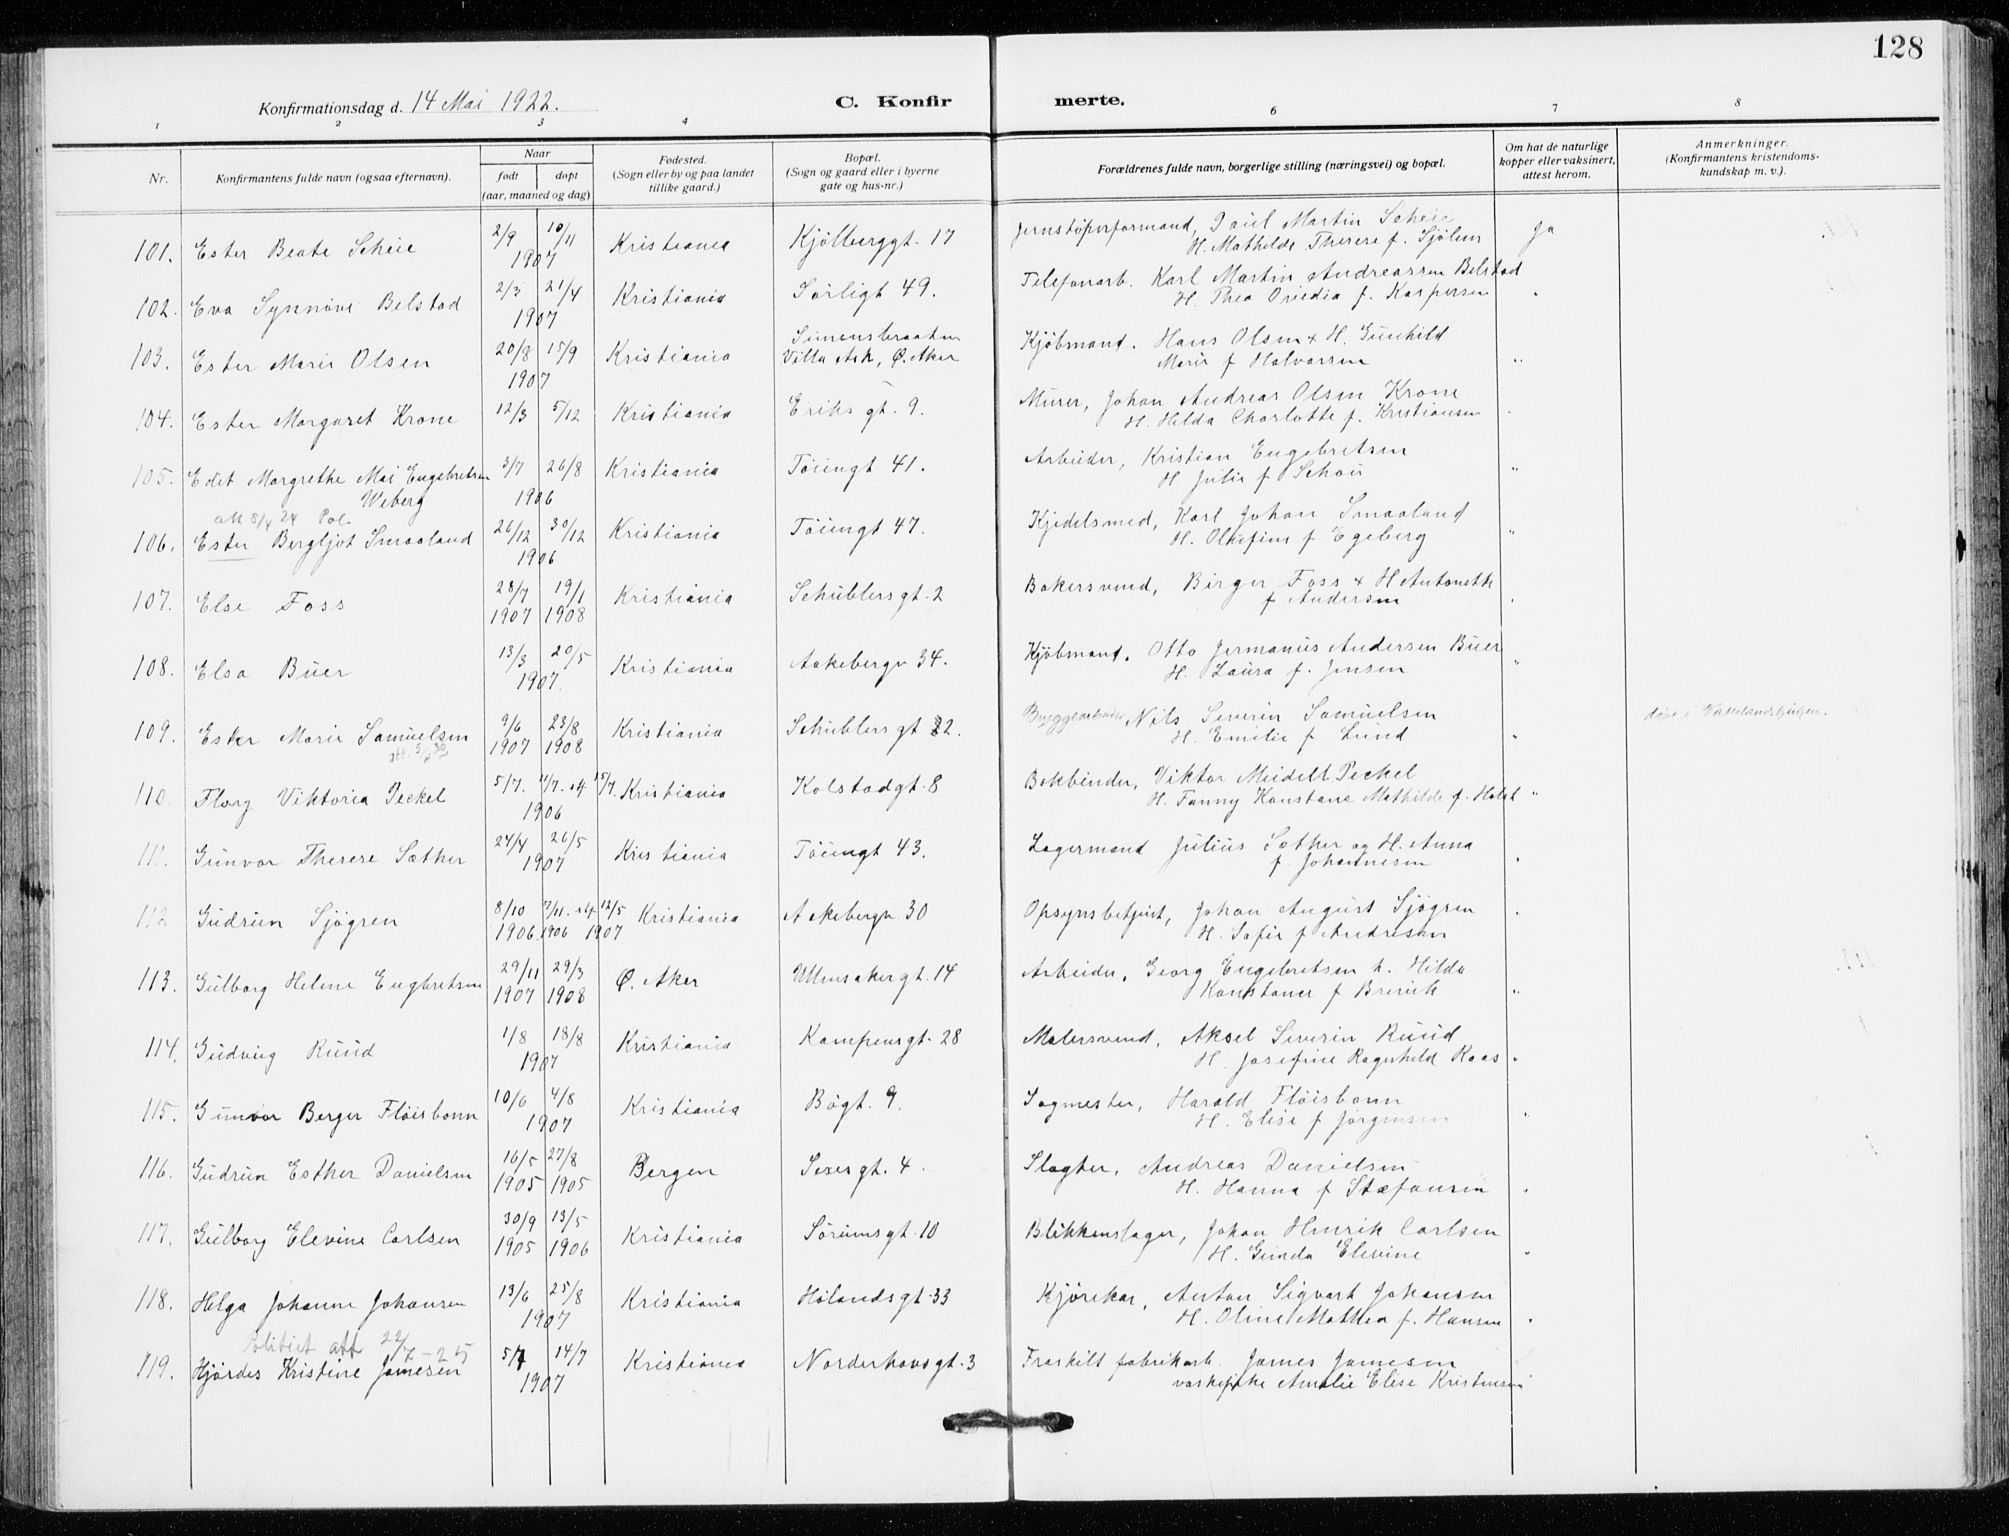 128
Konfirmationsdag d. 14 Mai 1922.
C. Konfir merte.
1 2 3 4 6 7 8
Nr.
Konfirmantens fulde navn (ogsaa efternavn).
Naar
født døpt
(aar, maaned og dag)
Fødested.
(Sogn eller by og paa landet
tillike gaard.)
Bopæl.
(Sogn og gaard eller i byerne
gate og hus-nr.)
Forældrenes fulde navn, borgerlige stilling (næringsvei) og bopæl.
Om hat de naturlige
kopper eller vaksinert,
attest herom.
Anmerkninger.
(Konfirmantens kristendoms-
kundskap m. v.).
101. Ester Beate Scheie 2/9 10/11 1907 Kristiania Kjölberggt. 17 Jernstøperformand, Paul Martin Scheie Ja
H. Mathilde Therese f. Sjölin
102. Eva Synnöve Belstad 2/3 21/4 1907 Kristiania Sørligt 49. Telefonarb. Karl Martin Andreassen Belstad
H. Thea Ovedia f. Kaspersen "
103. Ester Marie Olsen 20/8 15/9 1907 Kristiania Simensbraaten
Villa Ask, Ø. Aker Kjøbmand. Hans Olsen & H. Gunhild
Marie f Halvorsen "
104. Ester Margaret Krone 12/3 5/12 Kristiania Eriks gt. 9. Murer, Johan Andreas Olsen Krone
H. Hilda Charlotte f. Kristiansen "
105. Edit Margrethe Mai Engebretsen
Weberg 3/7 26/8 1906 Kristiania Töiengt 41. Arbeider, Kristian Engebretsen
H Julie f Schou "
att 8/4 24 Pol.
106. Ester Bergljot Smaaland 26/12 30/12 1906 Kristiania Töiengt 47. Kjedelsmed, Karl Johan Smaaland
H. Olufine f Egeberg "
107. Else Foss 28/7 1907 19/1 1908 Kristiania Schüblers gt. 2 Bakersvend, Birger Foss & H Antonette
f Andersen "
108. Elsa Buer 13/3 20/5 1907. Kristiania Aakebergv 34. Kjøbmand. Otto Jermanius Andersen Buer
H. Laura f. Jensen "
109. Ester Marie Samuelsen 9/6 1907 23/8 1908 Kristiania Schüblers gt 22. Bryggearbeider Nils Severin Samuelsen
H. Emilie f Lund " døpt i Vaterlandskirken.
110. Flory Viktoria Peckel 5/7. 11/7. st. 15/7 1906 Kristiania Kolstadgt. 8 Bokbinder, Viktor Meidell Peckel
H. Fanny Konstane Mathilde f. Holst "
111. Gunvor Therese Sæther 24/4 26/5 1907 Kristiania Töiengt 43. Lagermand Julius Sæther og H. Anna
f. Johannesen "
112 Gudrun Sjögren 8/10 1906 1906 12/5 1907 Kristiania Aakebergv. 30 Opsynsbetjent, Johan August Sjögren
H. Sofie f Andresen "
113. Gulborg Helene Engbretsen 29/11 1907 29/3 1908 Ø. Aker Ullensakergt. 14 Arbeider, Georg Engebretsen h. Hilda
Konstance f "
114. Gudveig Ruud 1/8 18/8 1907 Kristiania Kampensgt. 28 Malersvend, Aksel Severin Ruud
H. Josefine Ragnhild Raas "
115. Gunvor Berger Flöisbonn 10/6 4/8 1907 Kristiania Bögt. 9. Sagmester, Harald Flöisbonn
H. Elise f Jörgensen "
116. Gudrun Esther Danielsen 16/5 1905 27/8 1905 Bergen Sexesgt. 4 Slagter, Andreas Danielsen
H. Hanna f Stæfansen "
117. Gulborg Elevine Carlsen 30/9 1905 13/5 1906 Kristiania Sörumsgt. 10 Blikkenslager, Johan Henrik Carlsen
H. Gunda Elevine "
118. Helga Johanne Johansen 13/6 25/8 1907 Kristiania Hölandsgt. 33 Kjörekar, Anton Sigvart Johansen
H. Oline Mathea f. Hansen "
Politiet att 22/7 - 25
119. Hjördes Kristine Jamesen 5/4 14/7 1907 Kristiania Norderhovsgt. 3 Fraskilt fabrikarb. James Jamesen
Amalie Elise Kristensen "